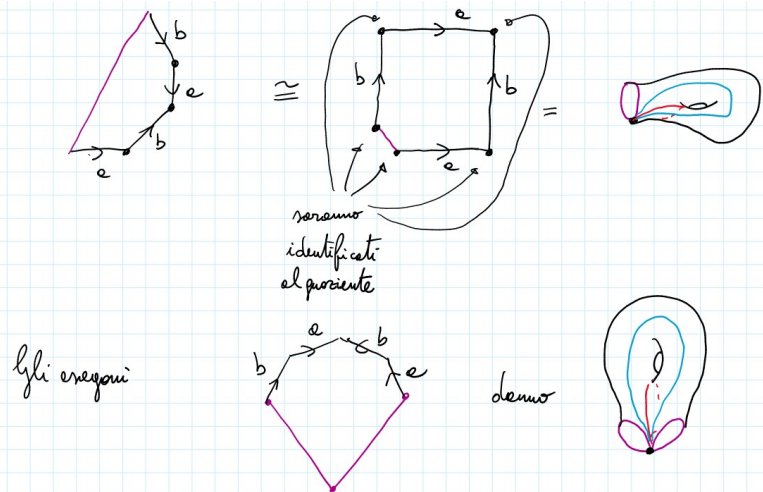 b
a
b
a
≅
a
b
b
a
=
saranno
identificati
al quoziente
Gli esagoni
b
a
b
a
danno